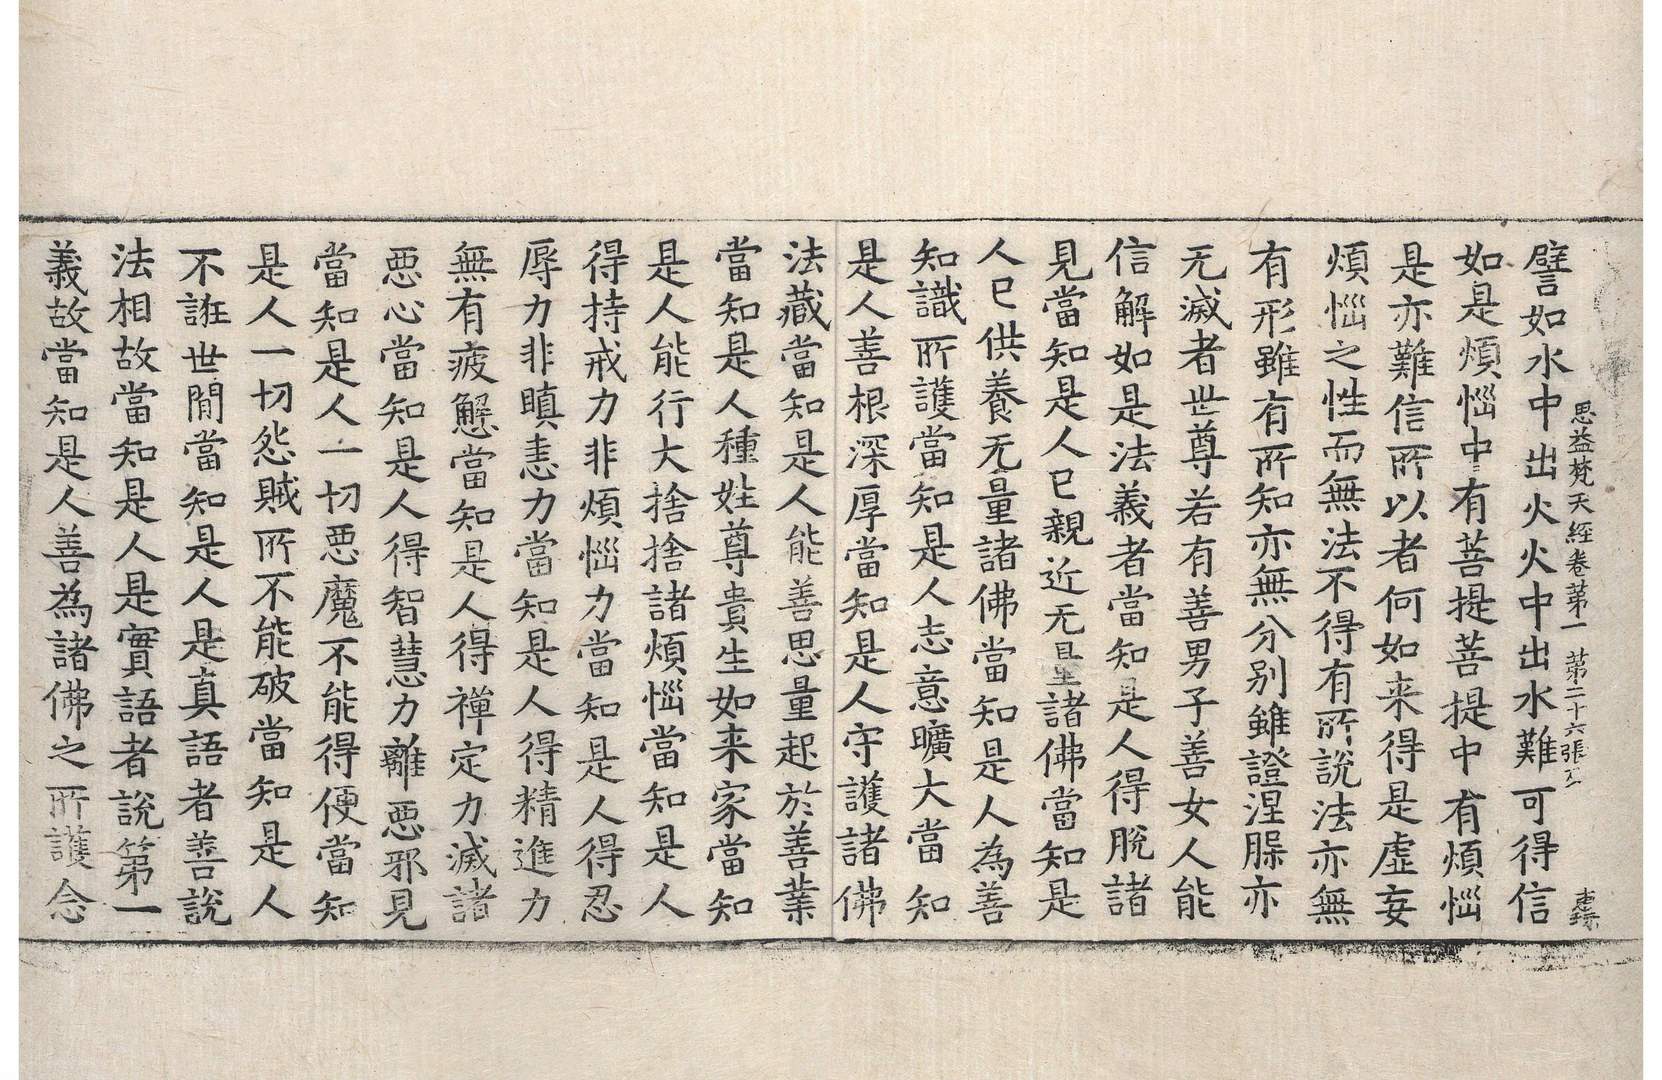 思益梵天經卷苐一 苐二十六張
譬如水中出火火中出水難可得信
如是煩惱中有菩提菩提中有煩惱
是亦難信所以者何如来得是虛妄
煩惱之性而無法不得有所說法亦無
有形雖有所知亦無分别雖證涅槃亦
无滅者世尊若有善男子善女人能
信解如是法義者當知是人得脫諸
見當知是人已親近无量諸佛當知是
人已供養无量諸佛當知是人為善
知識所護當知是人志意曠大當知
是人善根深厚當知是人守護諸佛
法藏當知是人能善思量起於善業
當知是人種姓尊貴生如来家當知
是人能行大捨捨諸煩惱當知是人
得持戒力非煩惱力當知是人得忍
辱力非瞋恚力當知是人得精進力
無有疲懈當知是人得禪定力滅諸
惡心當知是人得智慧力離惡邪見
當知是人一切惡魔不能得便當知
是人一切怨賊所不能破當知是人
不誑世間當知是人是真語者善說
法相故當知是人是實語者說第一
義故當知是人善為諸佛之所護念